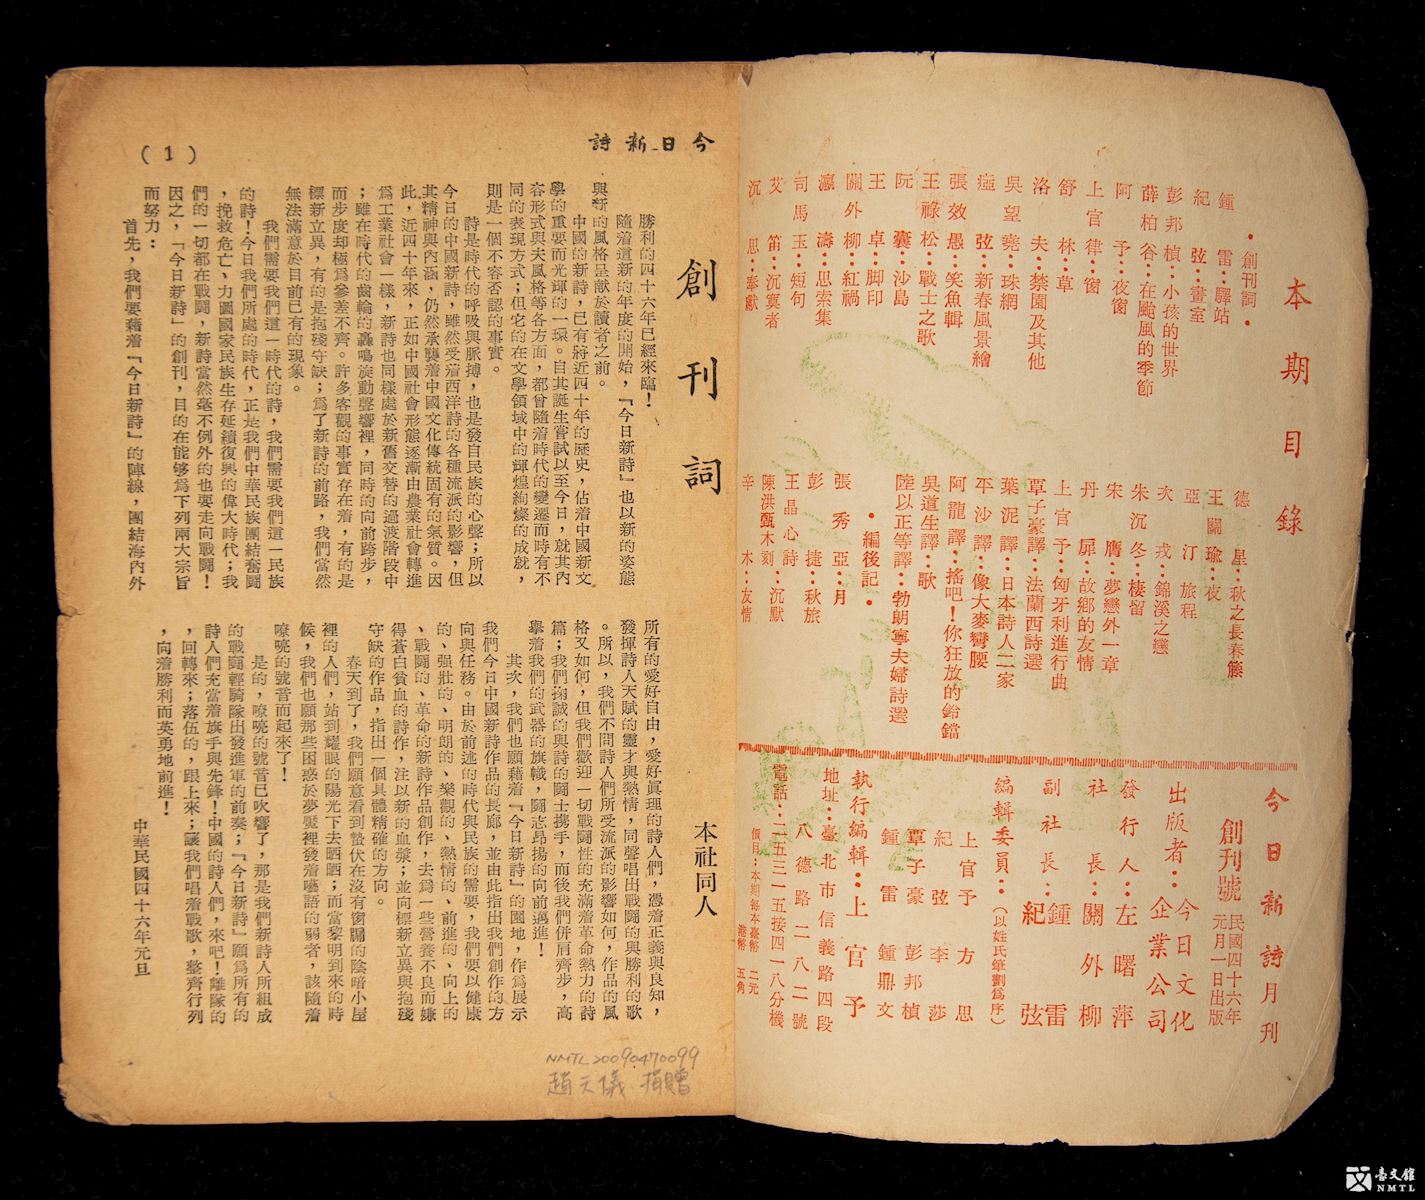 本期目錄
•創刊詞•
鍾雷：驛站
紀弦：畫室
彭邦楨：小孩的世界
薛柏谷：在颱風的季節
阿予：夜窗
上官律：窗
舒林：草
洛夫：禁園及其他
吳望堯：珠網
瘂弦：新春風景繪
張效愚：笑魚輯
王祿松：戰士之歌
阮囊：沙島
王卓：脚印
關外柳：紅禍
瀛濤：思索集
司馬玉：短句
艾笛：沉寞者
沉思：奉獻
德星：秋之長春籐
王關瑜：夜
亞汀：旅程
次戎：錦溪之戀
朱沉冬：棲留
宋膺：夢戀外一章
丹扉：故鄉的友情
上官予：匈牙利進行曲
覃子豪譯：法蘭西詩選
葉泥譯：日本詩人二家
平沙譯：像大麥彎腰
阿龍譯：搖吧！你狂放的鈴鐺
吳道生譯：歌
陸以正等譯：勃朗寧夫婦詩選
•編後記•
張秀亞：月
彭捷：秋旅
王晶心詩
陳洪甄木刻：沉默
辛木：友情
今日新詩月刊
創刊號 民國四十六年元月一日出版
出版者：今日文化企業公司
發行人：左曙萍
社長：關外柳
副社長：鍾雷
紀弦
編輯委員：（以姓氏筆劃為序）
上官予 方思
紀弦 李莎
覃子豪 彭邦楨
鍾雷 鍾鼎文
執行編輯：上官予
地址：臺北市信義路四段
八德路二八二號
電話：二五三一五接四一八分機
價目：本期每本臺幣二元
港幣五角
今日新詩
（1）
創刊詞
本社同人
勝利的四十六年已經來臨！
隨着這新的年度的開始，「今日新詩」也以新的姿態
與新的風格呈献於讀者之前。
中國的新詩，已有將近四十年的歷史，佔着中國新文
學的重要而光輝的一環。自其誕生嘗試以至今日，就其內
容形式與夫風格等各方面，都曾隨着時代的變遷而時有不
同的表現方式；但它的在文學領域中的輝煌絢燦的成就，
則是一個不容否認的事實。
詩是時代的呼吸與脈搏，也是發自民族的心聲；所以
今日的中國新詩，雖然受着西洋詩的各種流派的影響，但
其精神與內涵，仍然承襲着中國文化傳統固有的氣質。因
此，近四十年來，正如中國社會形態逐漸由農業社會轉進
爲工業社會一樣，新詩也同樣處於新舊交替的過渡階段中
；雖在時代的齒輪的轟鳴旋動聲響裡，同時的向前跨步，
而步度却極爲參差不齊。許多客觀的事實存在着，有的是
標新立異，有的是抱殘守缺；爲了新詩的前路，我們當然
無法滿意於目前已有的現象。
我們需要我們這一時代的詩，我們需要我們這一民族
的詩！今日我們所處的時代，正是我們中華民族團結奮鬪
，挽救危亡，力圖國家民族生存延續復興的偉大時代；我
們的一切都在戰鬪，新詩當然毫不例外的也要走向戰鬪！
因之，「今日新詩」的創刊，目的在能够爲下列兩大宗旨
而努力：
首先，我們要藉着「今日新詩」的陣線，團結海內外
所有的愛好自由，愛好眞理的詩人們，憑着正義與良知，
發揮詩人天賦的靈才與熱情，同聲唱出戰鬪的與勝利的歌
。所以，我們不問詩人們所受流派的影響如何，作品的風
格又如何，但我們歡迎一切戰鬪性的充滿着革命熱力的詩
篇；我們掬誠的與詩的鬪士携手，而後我們併肩齊步，高
擧着我們的武器的旗幟，鬪志昂揚的向前邁進！
其次，我們也願藉着「今日新詩」的園地，作爲展示
我們今日中國新詩作品的長廊，並由此指出我們創作的方
向與任務。由於前述的時代與民族的需要，我們要以健康
的、强壯的、明朗的、樂觀的、熱情的、前進的、向上的
、戰鬪的、革命的新詩作品創作，去爲一些營養不良而嫌
得蒼白貧血的詩作，注以新的血漿；並向標新立異與抱殘
守缺的作品，指出一個具體精確的方向。
春天到了，我們願意看到蟄伏在沒有窗閞的陰暗小屋
裡的人們，站到耀眼的陽光下去晒晒；而當黎明到來的時
候，我們也願那些困惑於夢魘裡發着囈語的弱者，該隨着
嘹喨的號音而起來了！
是的，嘹喨的號音已吹響了，那是我們新詩人所組成
的戰鬪輕騎隊出發進軍的前奏；「今日新詩」願爲所有的
詩人們充當着旗手與先鋒！中國的詩人們，來吧！離隊的
，回轉來；落伍的，跟上來；讓我們唱着戰歌，整齊行列
，向着勝利而英勇地前進！
中華民國四十六年元旦
NMTL20090470099
趙文儀 捐贈
臺文館
NMTL